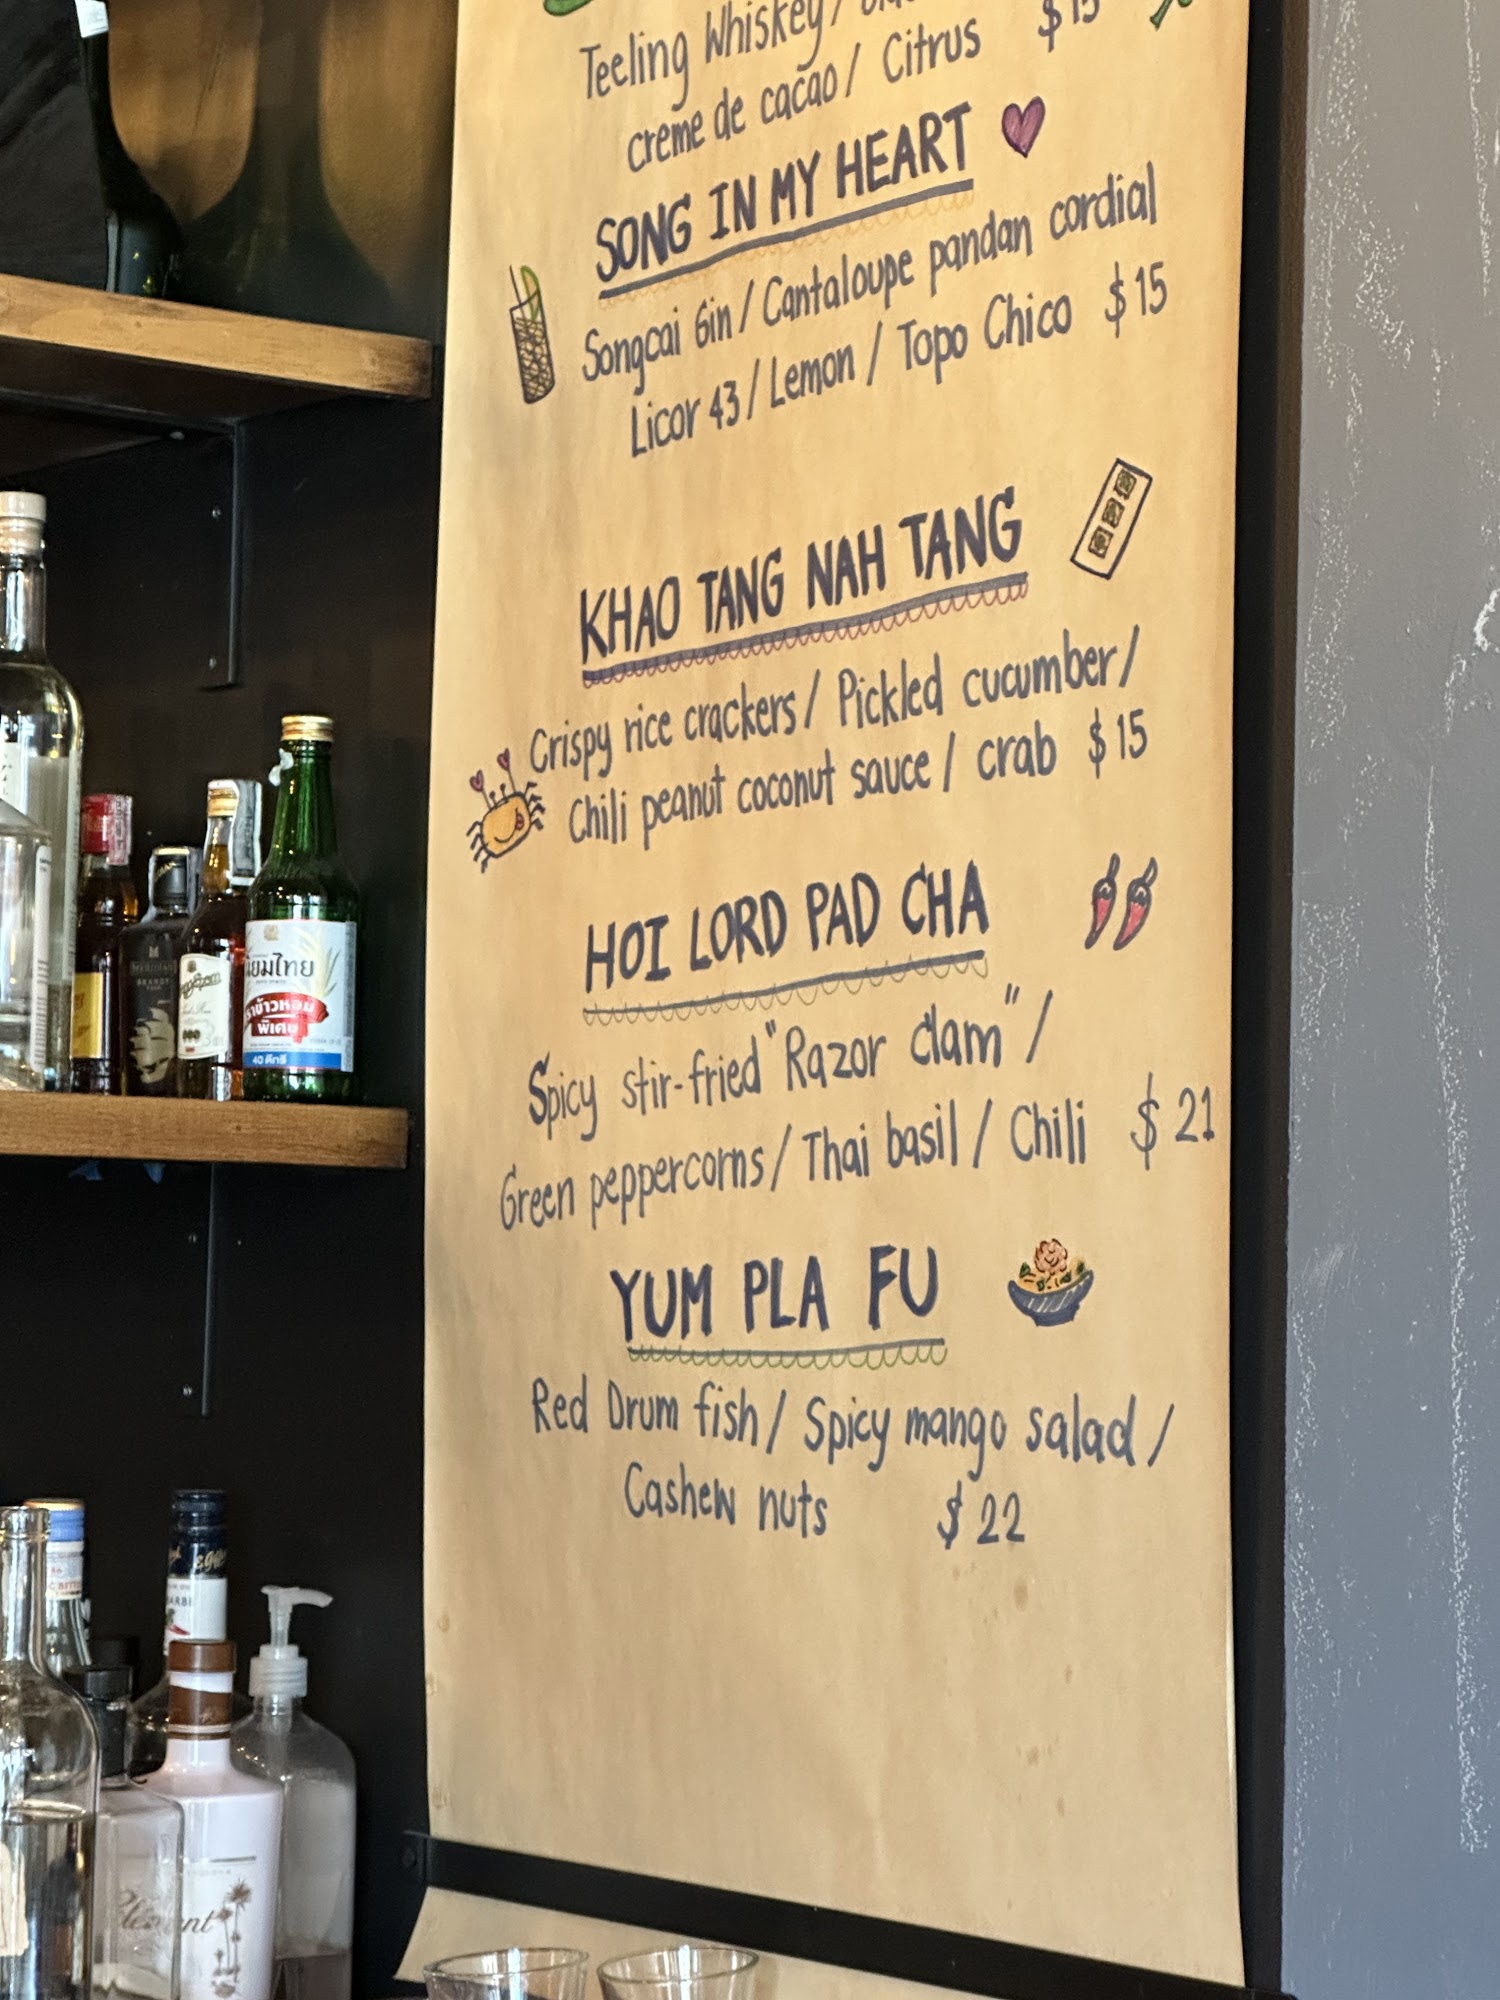 Teeling Whiskey /
creme de cacao / Citrus $15
SONG IN MY HEART
Songcai Gin / Cantaloupe pandan cordial
Licor 43 / Lemon / Topo Chico $15
KHAO TANG NAH TANG
Crispy rice crackers / Pickled cucumber /
Chili peanut coconut sauce / crab $15
HOI LORD PAD CHA
Spicy stir-fried "Razor clam" /
Green peppercorns / Thai basil / Chili $21
YUM PLA FU
Red Drum fish / Spicy mango salad /
Cashew nuts $22
MERIDIAN
BRANDY
นิยมไทย
ข้าวหอม
พิเศษ
40 ดีกรี